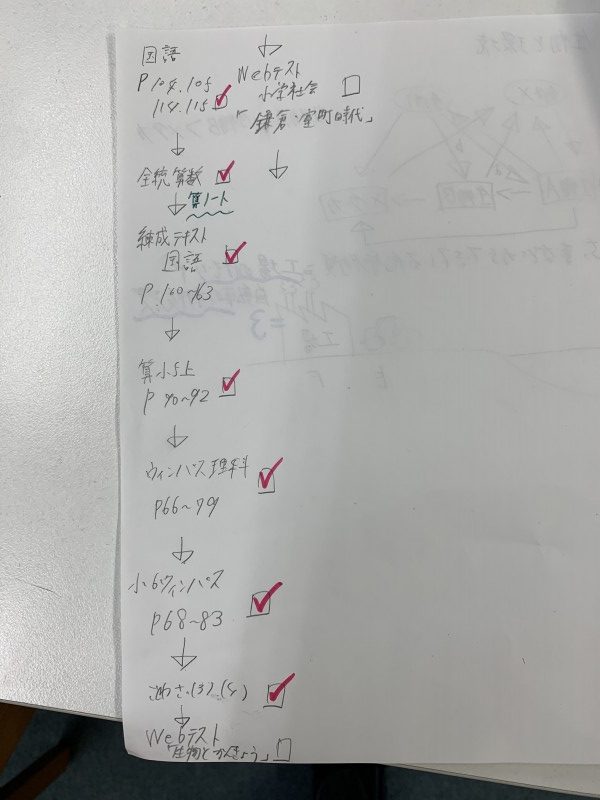 国語
P 104.105
114.115
全統算数
算ノート
練成テキスト
国語
P.160~163
算小5上
P 90~92
ウィンパス理科
P66~79
小6ウィンパス
P68~83
(3)(4)
Webテスト
「生物とかんきょう」
Webテスト
小学社会
「鎌倉・室町時代」